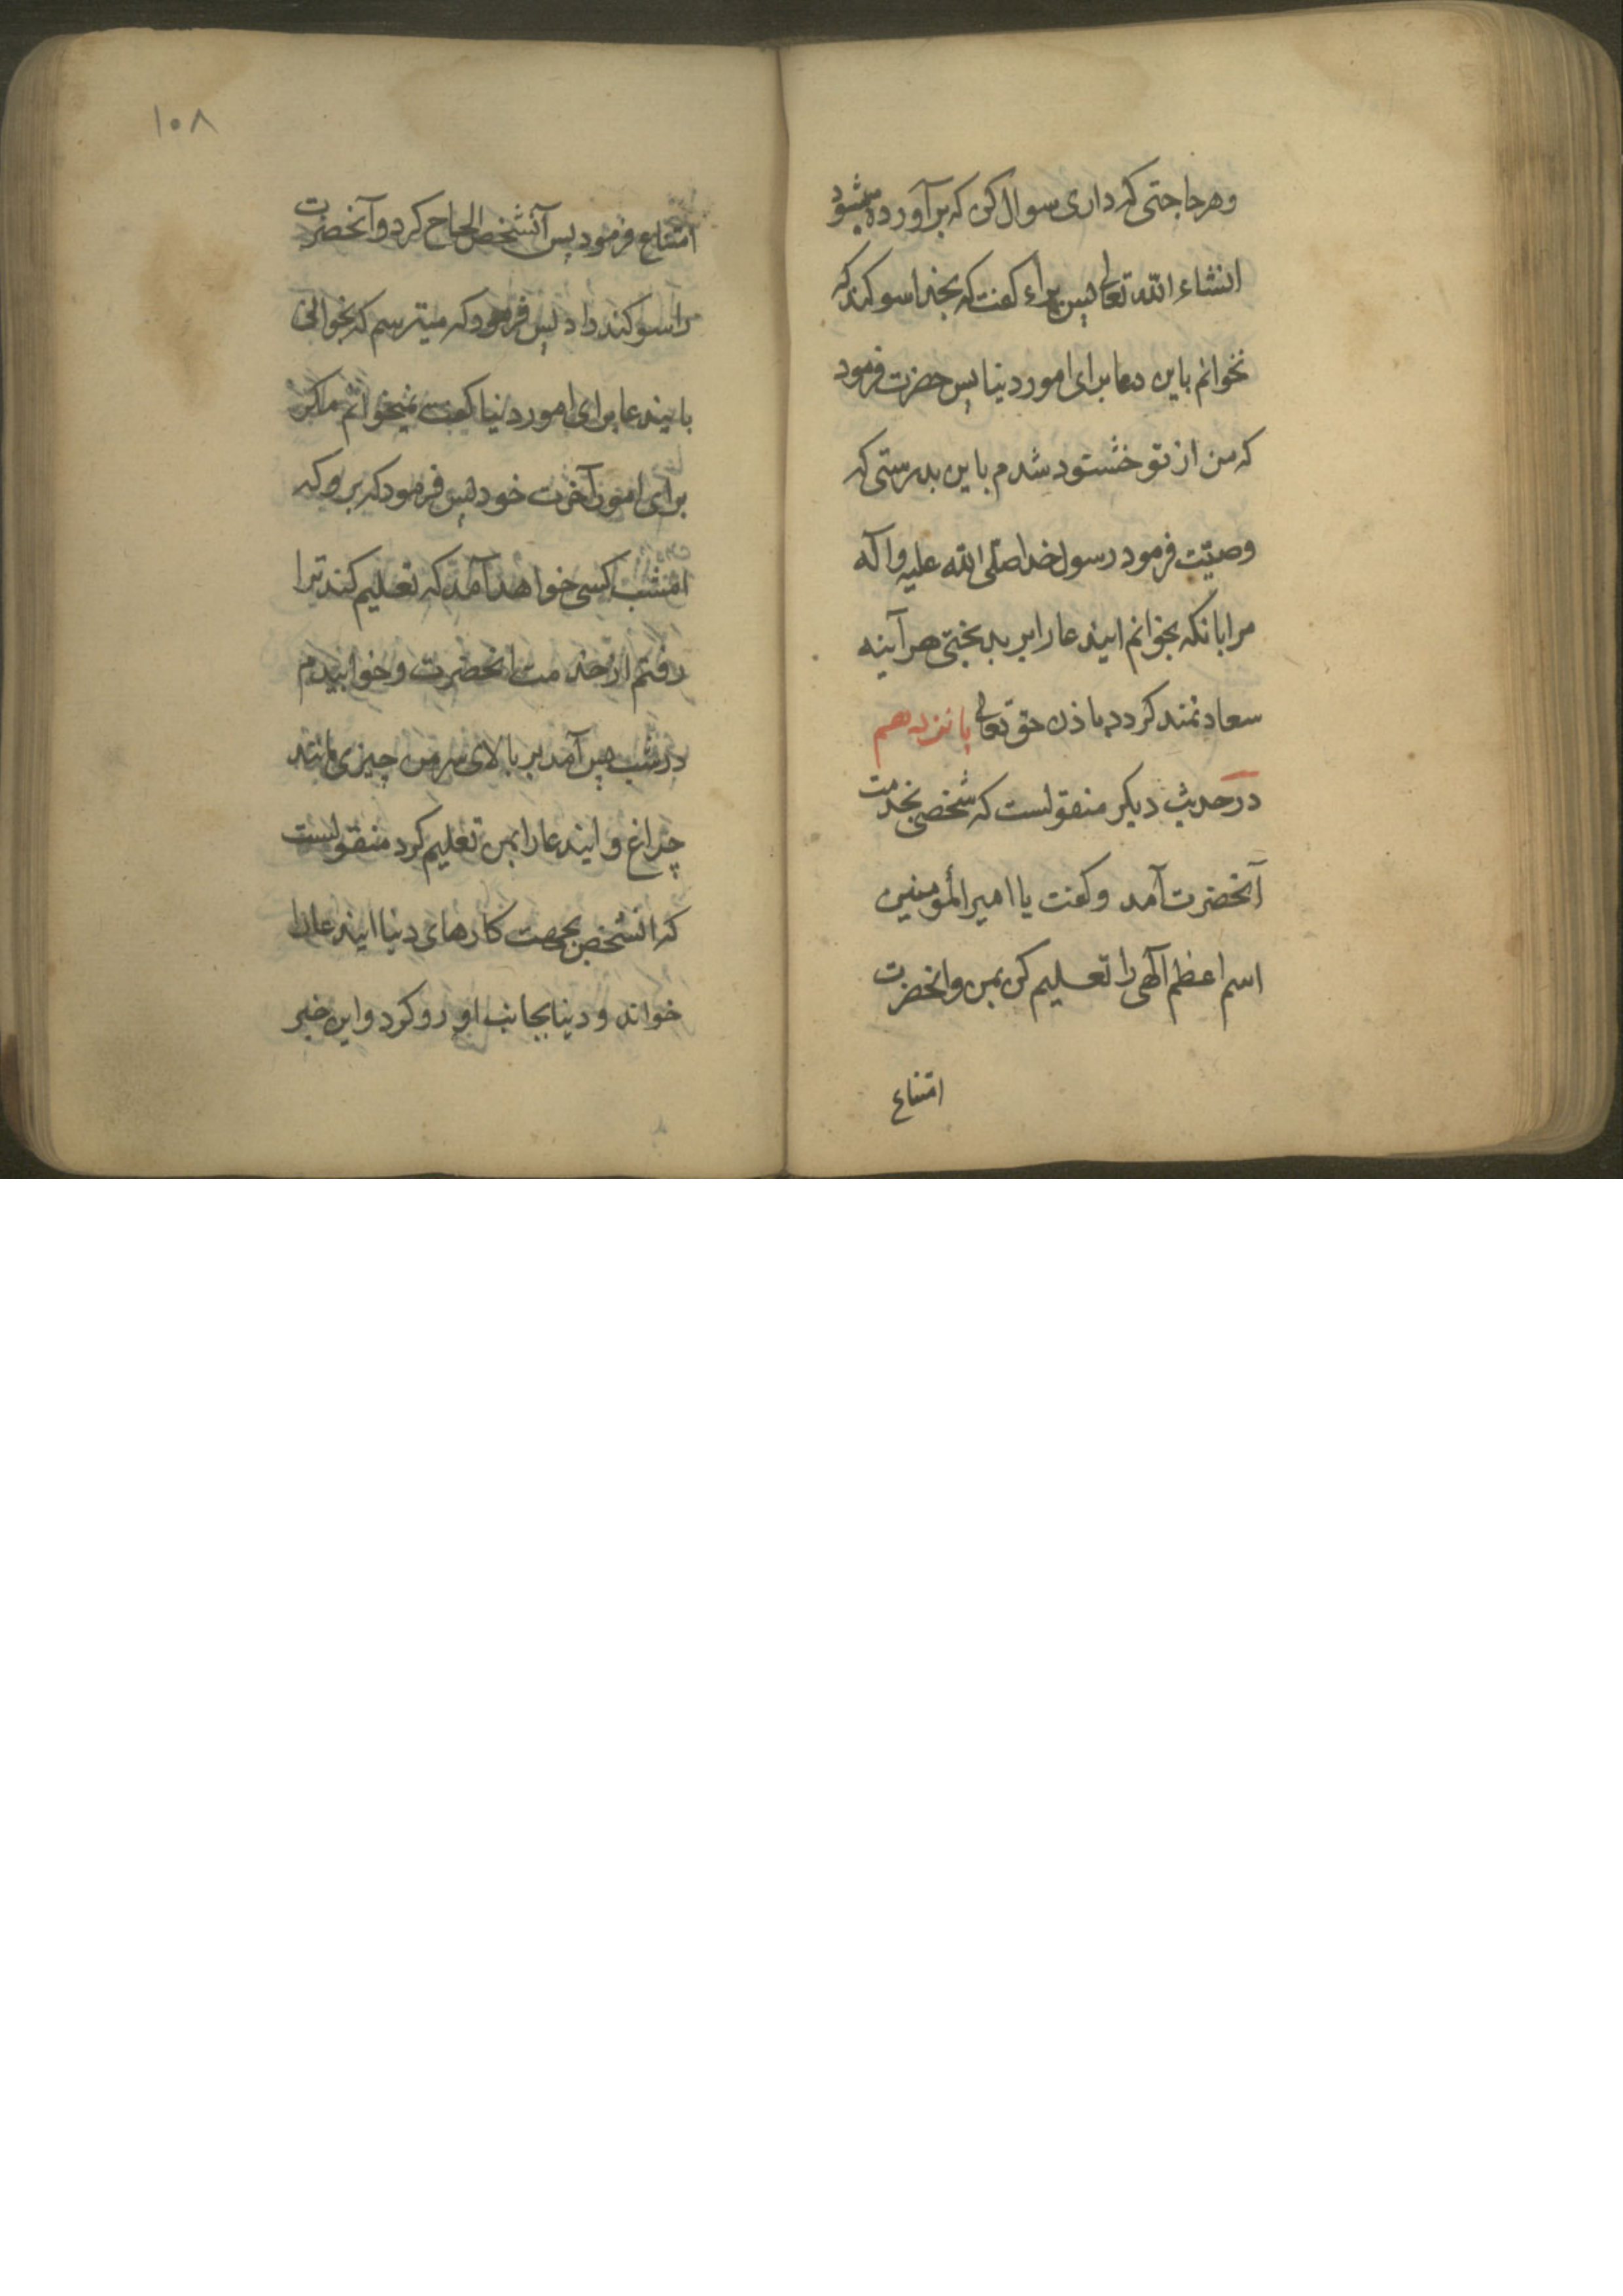 وهر حاجتی که داری سوال کن که برآورده میشود
انشاء الله تعالی پس براء کفت که بخدا سوکند که
نخوانم باین دعا برای امور دنیا پس حضرت فرمود
که من از تو خشنود شدم باین بدرستی که
وصیّت فرمود رسول خدا صلی الله علیه وآله
مرا بانکه بخوانم ایندعا را بر بدبختی هرآینه
سعادتمند کردد باذن حق تعالی پانزدهم
در حدیث دیکر منقولست که شخصی بخدمت
آنحضرت آمد وکفت یا امیر المؤمنین
اسم اعظم آلهی را تعلیم کن بمن وانحضرت
امتناع
۱۰۸
امتناع فرمود پس آنشخص الحاح کرد وآنحضرت
را سوکند داد پس فرمود که میترسم که بخوانی
بایندعا برای امور دنیا کفت نمیخوانم مکر
برای امور آخرت خود پس فرمود که برو که
امشب کسی خواهد آمد که تعلیم کند ترا
رفتم از خدمت انحضرت وخوابیدم
در شب پس آمد بر بالای سر من چیزی مانند
چراغ و ایندعا را بمن تعلیم کرد منقولست
که انشخص بجهت کارهای دنیا ایندعا را
خواند و دنیا بجانب او رو کرد واین خبر